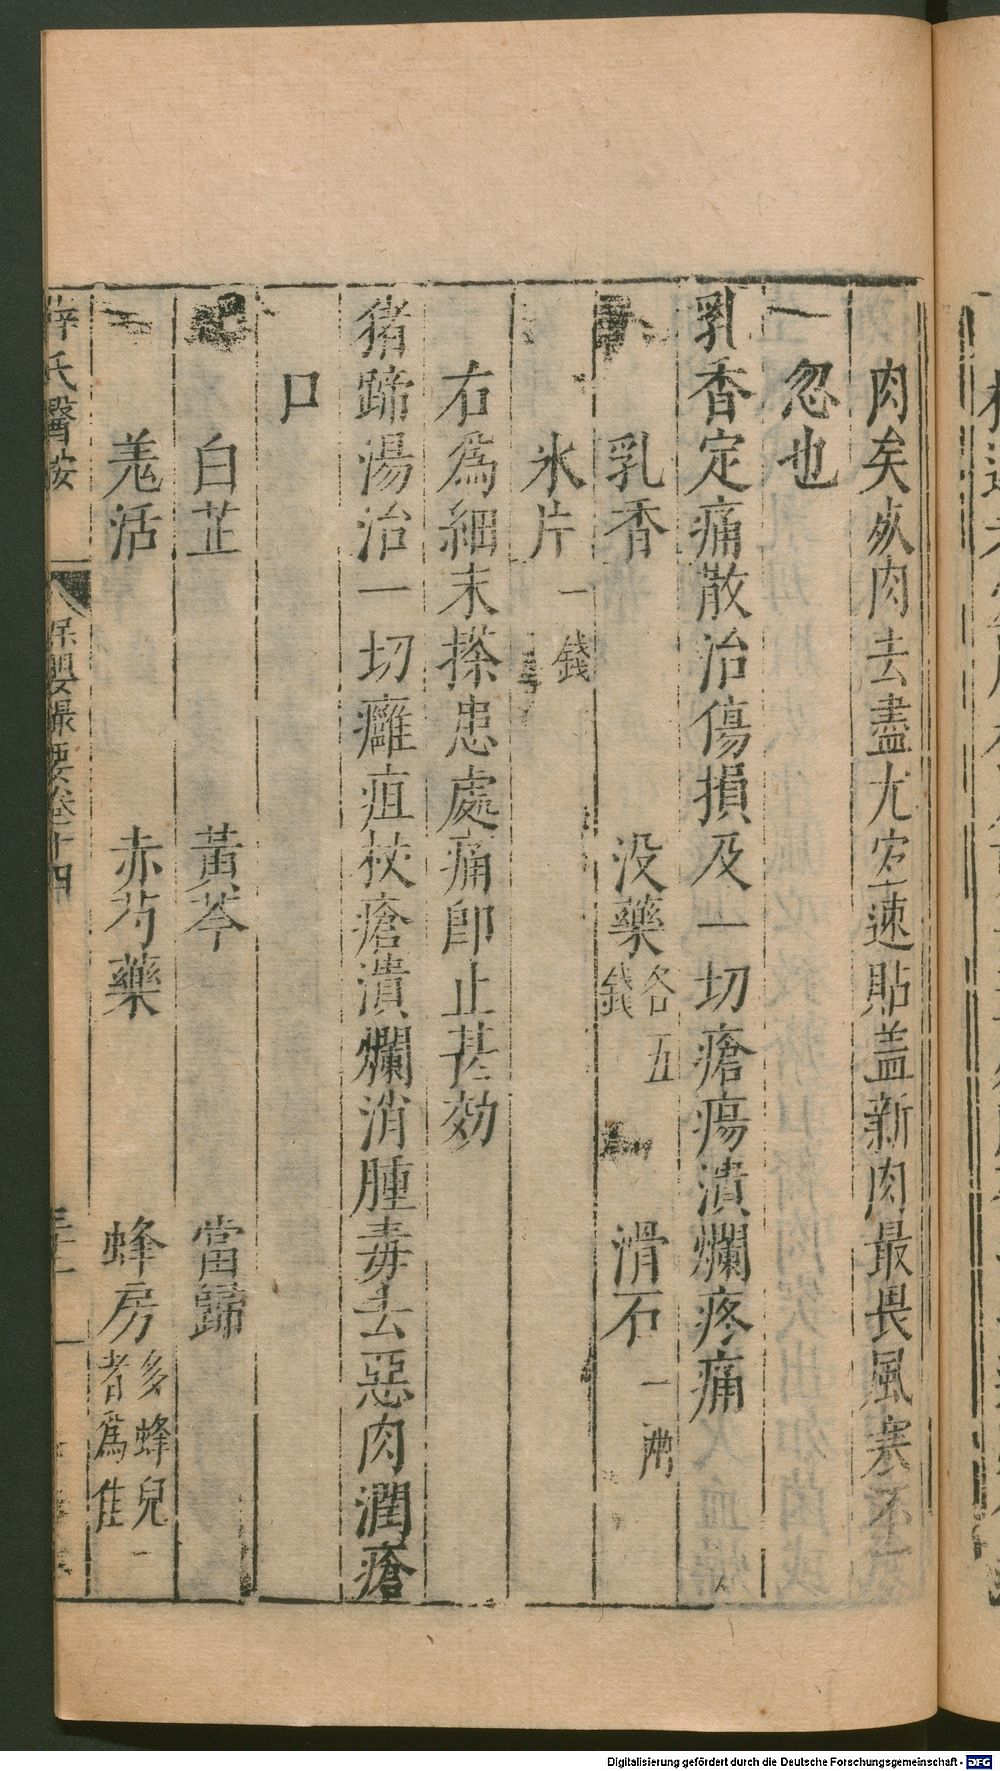 肉矣死肉去盡尤宜速貼盖新肉最畏風寒不可
忽也
乳香定痛散治傷損及一切瘡瘍潰爛疼痛
乳香 没藥各五錢 滑石一兩
氷片一錢
右爲細末搽患處痛即止甚効
猪蹄湯治一切癰疽杖瘡潰爛消腫毒去惡肉潤瘡
口
白芷 黃芩 當歸
羗活 赤芍藥 蜂房多蜂兒者爲佳
薛氏醫按 保嬰撮要卷十四
Digitalisierung gefördert durch die Deutsche Forschungsgemeinschaft - DFG